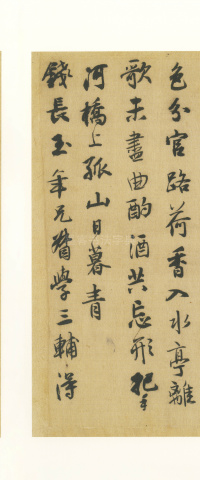 色分官路荷香入水亭離
歌未盡曲酌酒共忘形把手
河橋上孤山日暮青
錢長玉年兄督學三輔得